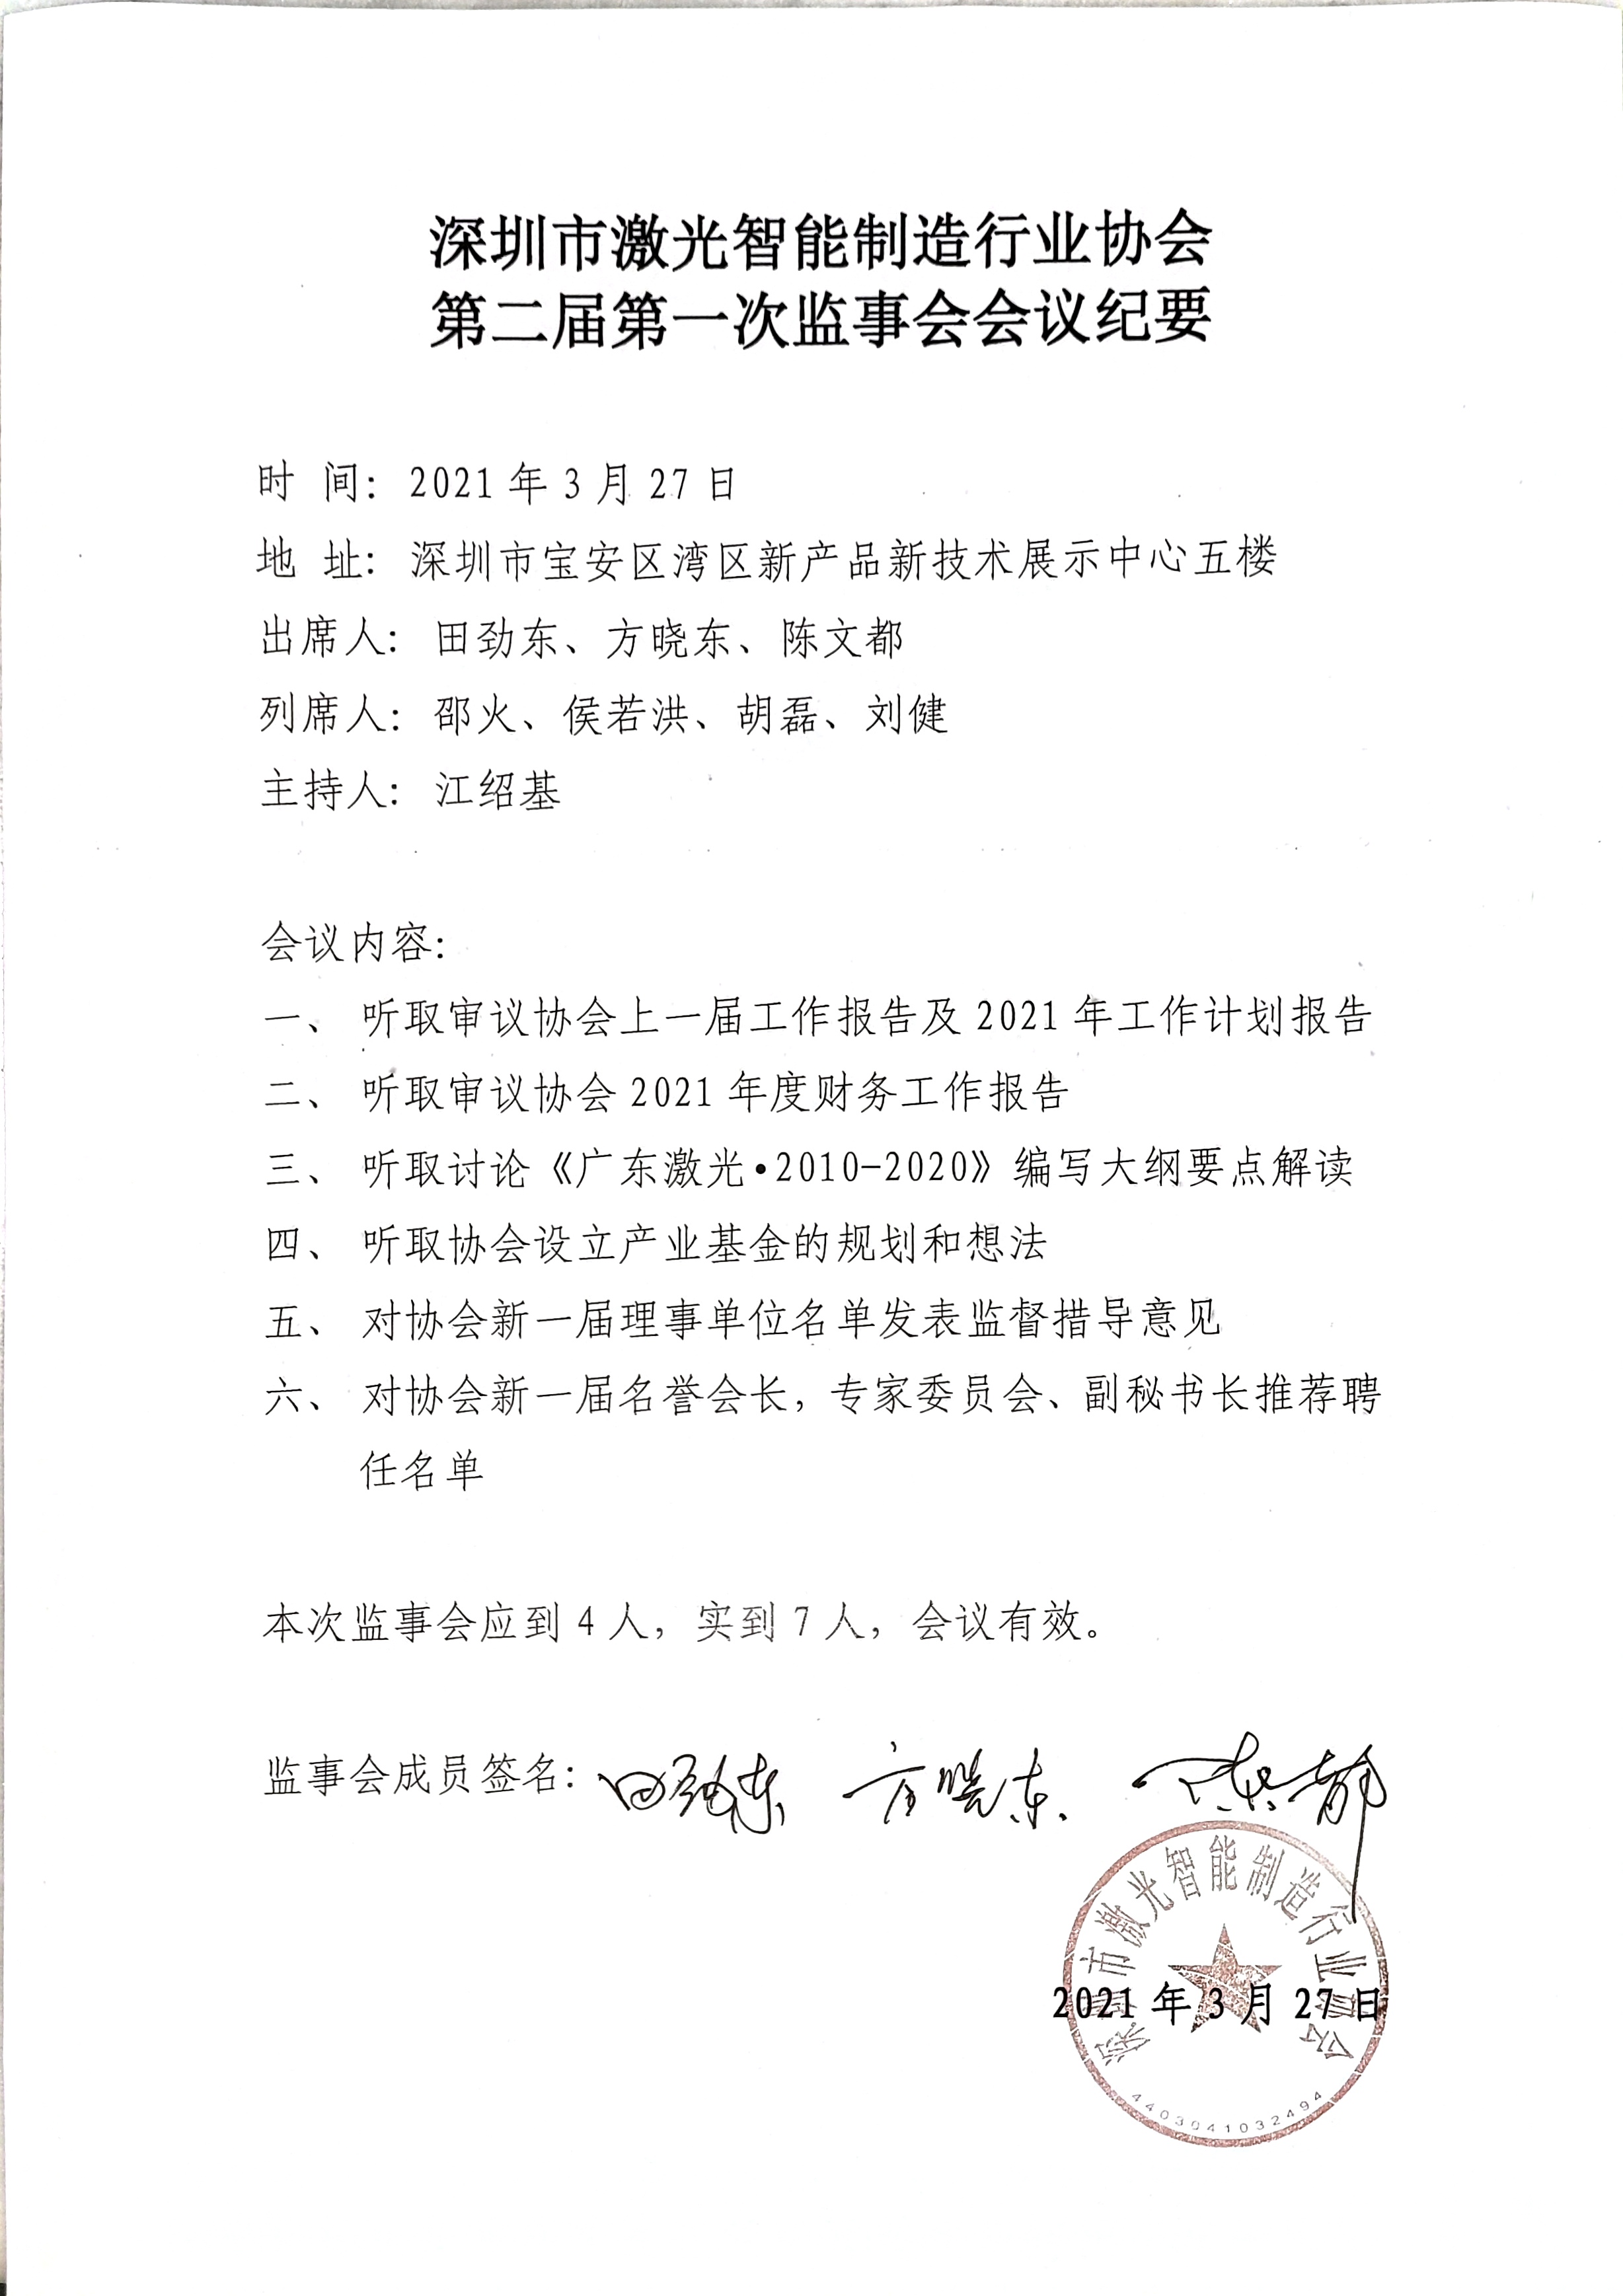 深圳市激光智能制造行业协会
第二届第一次监事会会议纪要
时 间: 2021 年 3 月 27 日
地 址: 深圳市宝安区湾区新产品新技术展示中心五楼
出席人: 田劲东、方晓东、陈文都
列席人: 邵火、侯若洪、胡磊、刘健
主持人: 江绍基
会议内容:
一、 听取审议协会上一届工作报告及 2021 年工作计划报告
二、 听取审议协会 2021 年度财务工作报告
三、 听取讨论《广东激光•2010-2020》编写大纲要点解读
四、 听取协会设立产业基金的规划和想法
五、 对协会新一届理事单位名单发表监督措导意见
六、 对协会新一届名誉会长，专家委员会、副秘书长推荐聘
任名单
本次监事会应到 4 人，实到 7 人，会议有效。
监事会成员签名: 田劲东 方晓东 陈文都
深圳市激光智能制造行业协会
2021 年 3 月 27 日
4403041032494